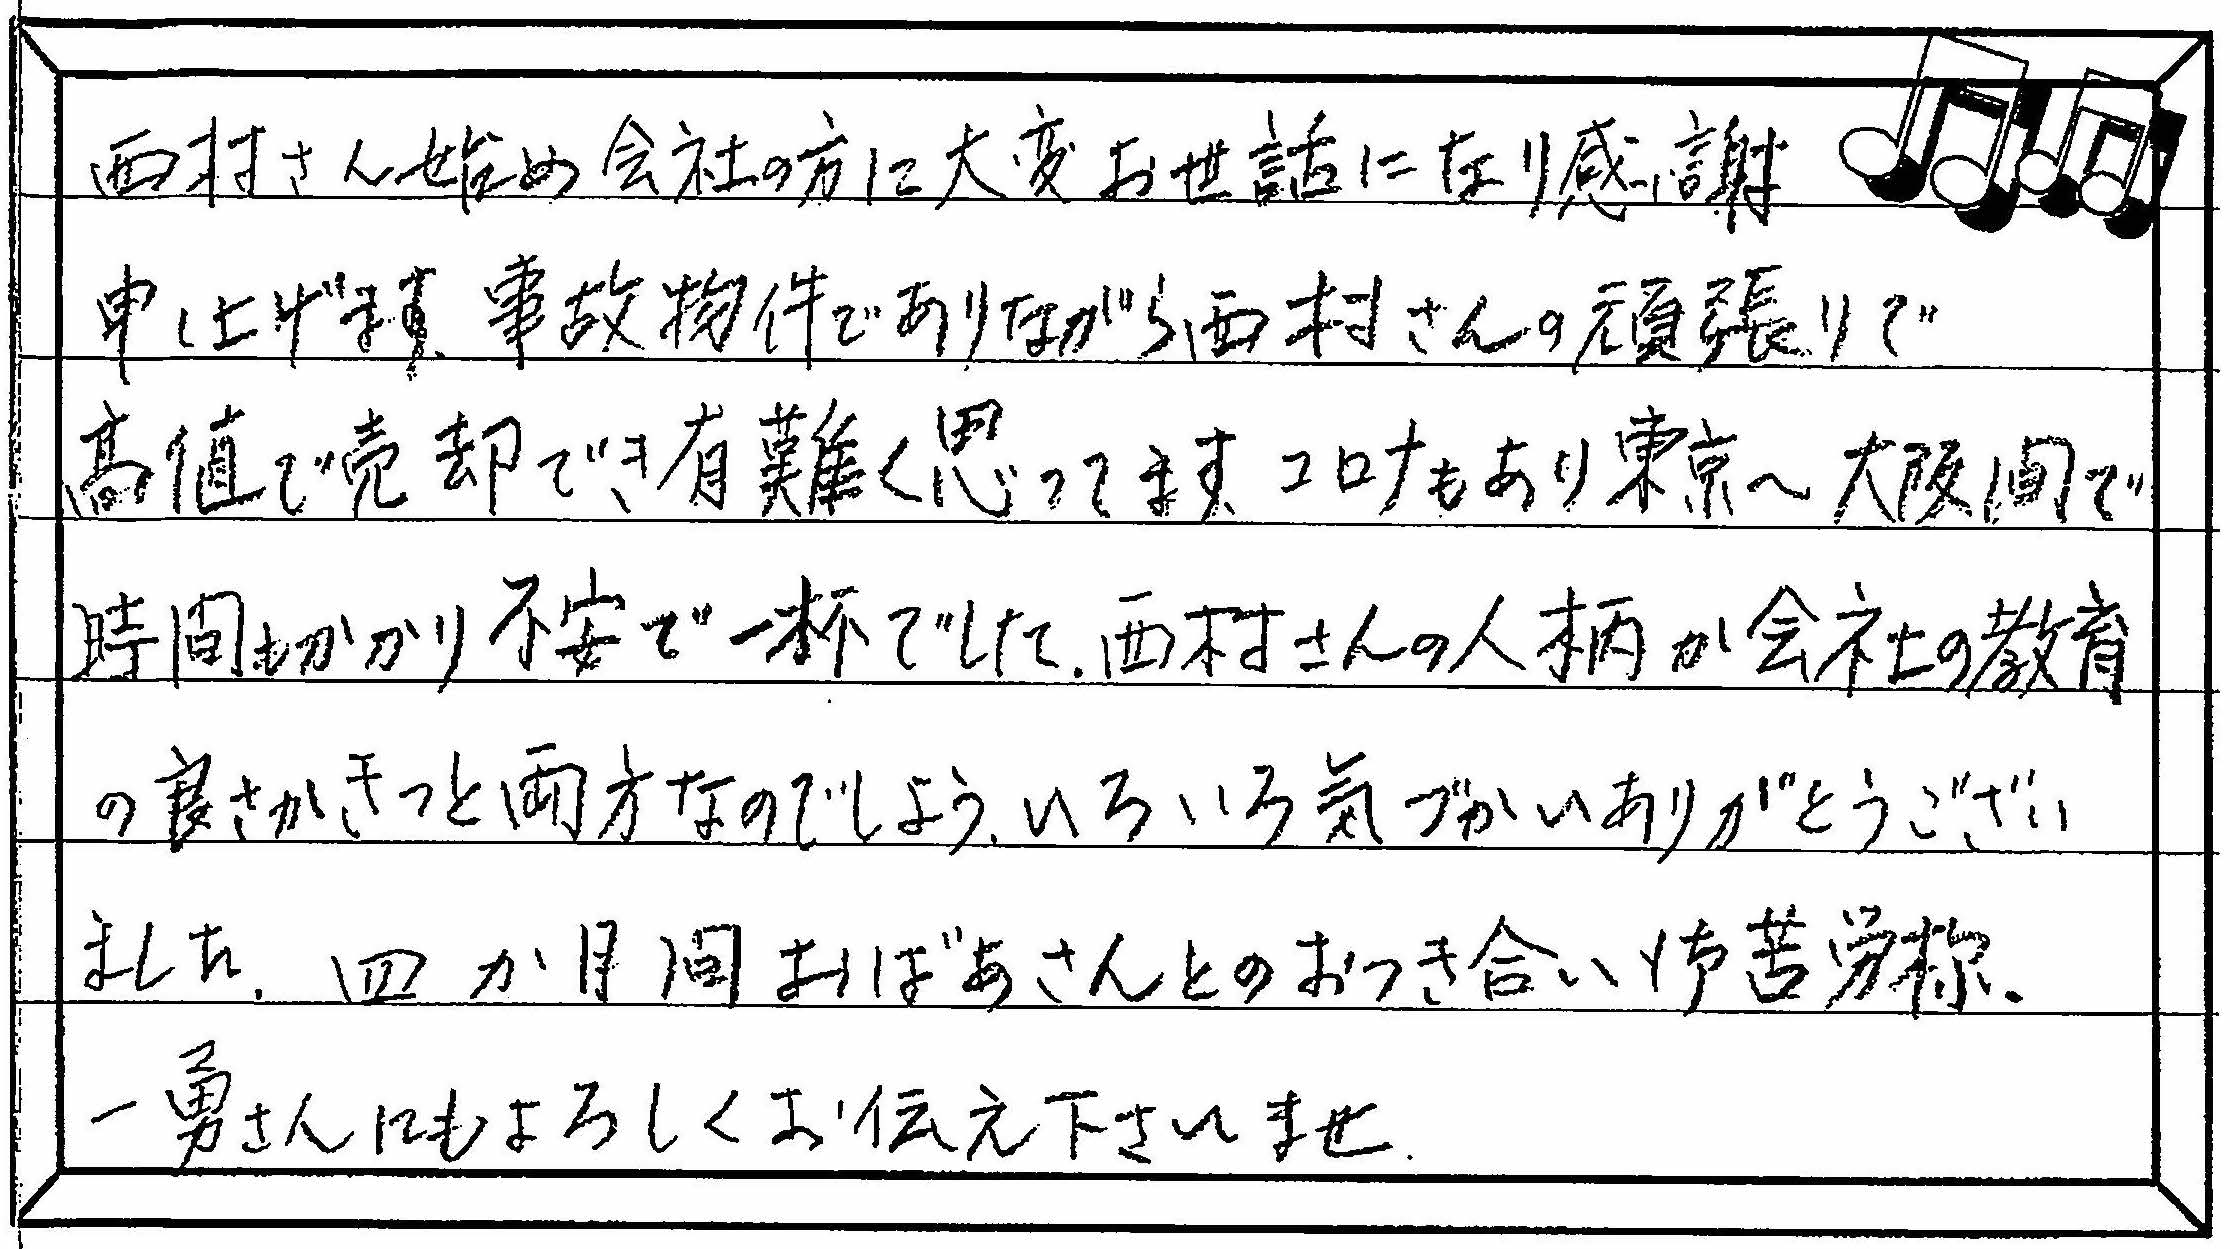 西村さん始め会社の方に大変お世話になり感謝
申し上げます、事故物件でありながら西村さんの頑張りで
高値で売却でき有難く思ってます、コロナもあり東京〜大阪間で
時間もかかり不安で一杯でした、西村さんの人柄か会社の教育
の良さかきっと両方なのでしょう、いろいろ気づかいありがとうござい
ました、四か月間おばあさんとのおつき合い御苦労様、
一勇さんにもよろしくお伝え下さいませ、